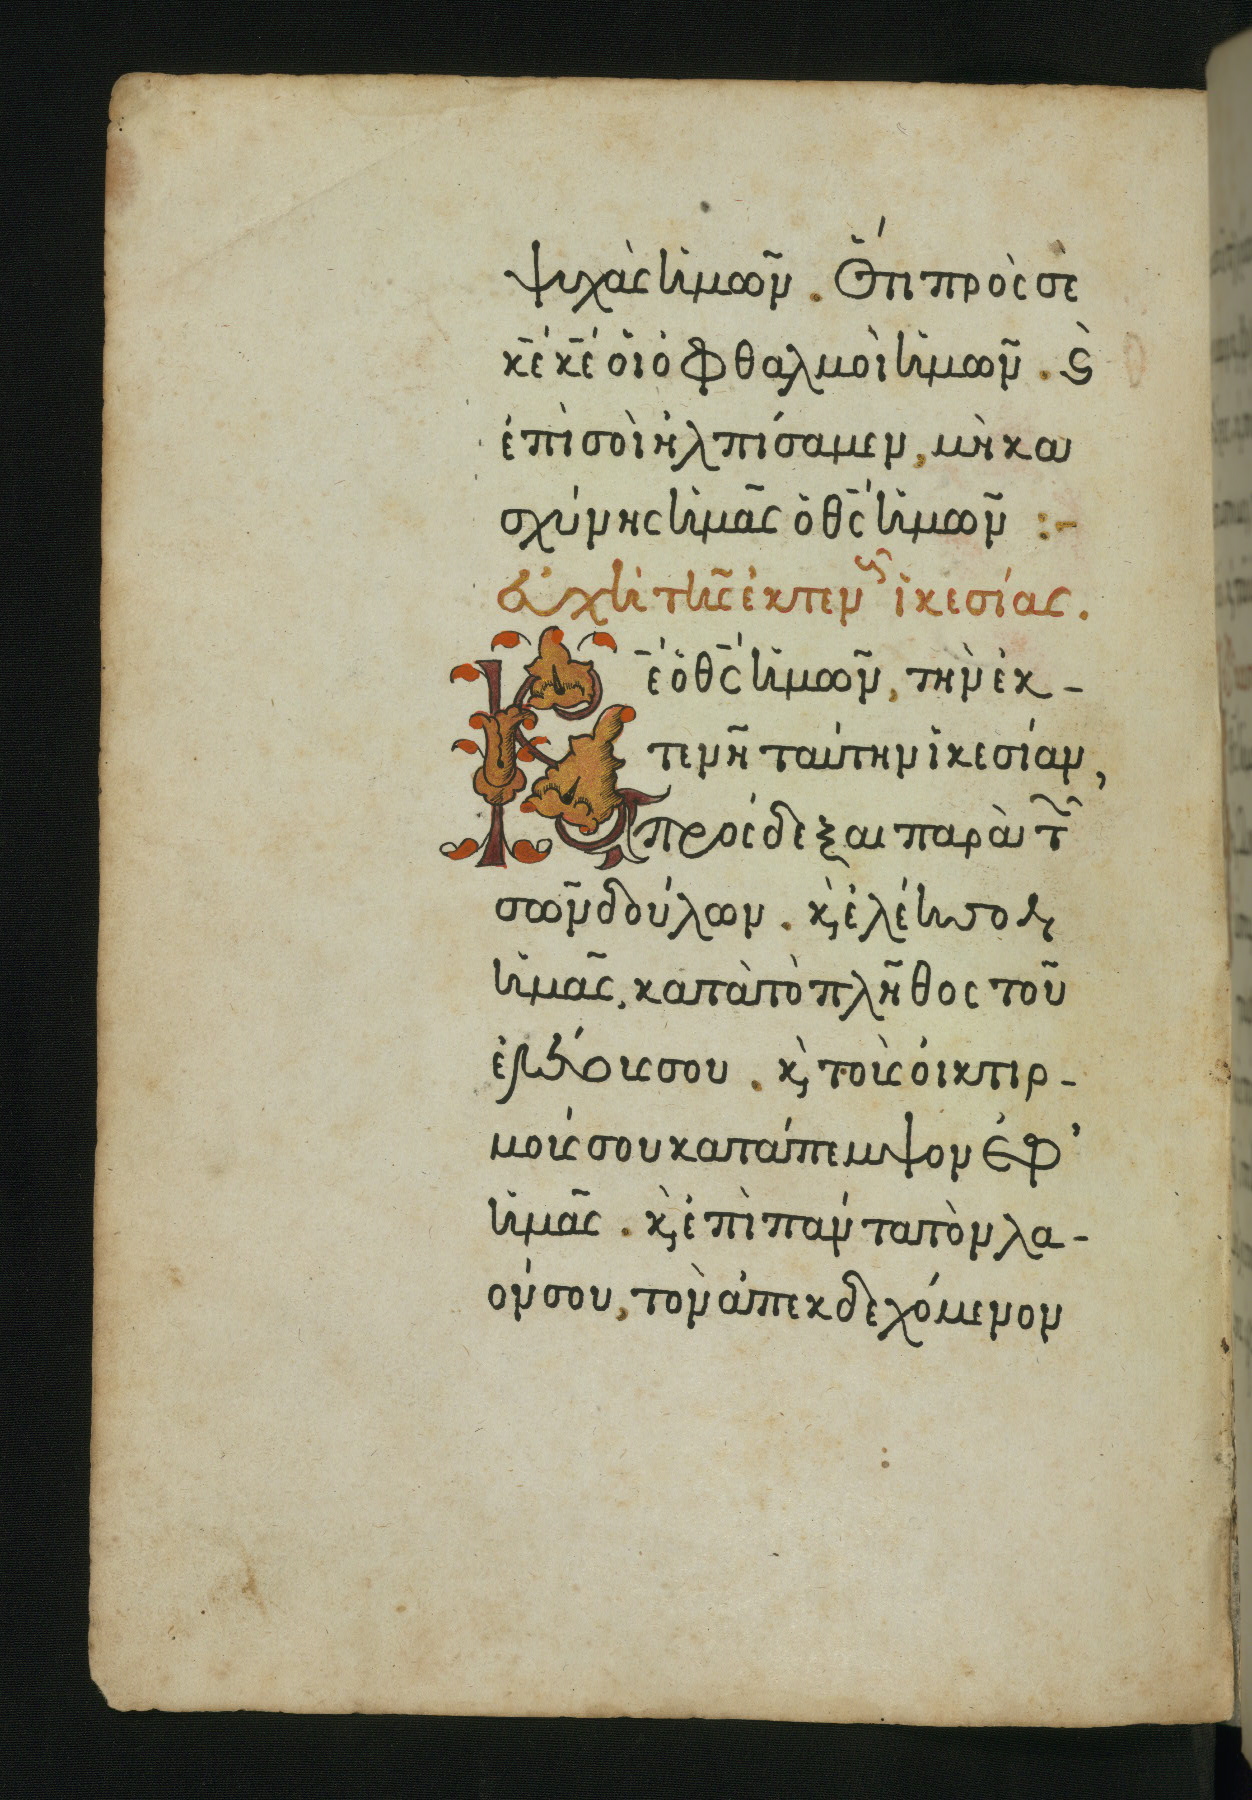 ψυχὰς ἡμῶν. Ὅτι πρὸς σὲ
κ̅ε κ̅ε οἱ ὀφθαλμοὶ ἡμῶν. ϗ
ἐπὶ σοὶ ἠλπίσαμεν, μὴ και
σχύνης ἡμᾶς ὁ θ̅ς ἡμῶν :-
ἐυχὴ τῆς ἐκτεν ἱκεσίας.
Κ̅ε ὁ θ̅ς ἡμῶν, τὴν ἐκ-
τενῆ ταύτην ἱκεσίαν,
πρόσδεξαι παρὰ τ
σῶν δούλων. ϗ ἐλέησον
ἡμᾶς, κατὰ τὸ πλῆθος τοῦ
ἐλέους σου. ϗ τοὺς ὀικτιρ-
μούς σου κατάπεμψον ἐφ’
ἡμᾶς. ϗ ἐπὶ πάντα τὸν λα-
όν σου, τὸν ἀπεκδεχόμενον